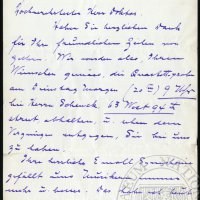 Hochverehrter Herr Doktor
Haben Sie herzlichen Dank
für Ihre freundlichen Zeilen von
gestern. Wir werden also, Ihrem
Wunsche gemäss, die Quartettprobe
am Dienstag Morgen (20 III) 9 Uhr
bei Herrn Schenck, 63 West 94th
street abhalten, u. sehen dem
Vergnügen entgegen, Sie bei uns
zu haben.
Ihre herrliche E moll-Symphonie
gefällt uns
mehr u. besser. Das